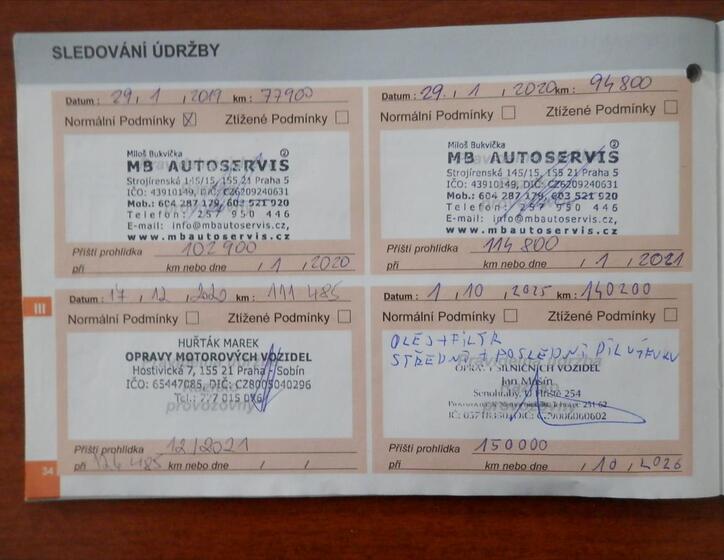 SLEDOVÁNÍ ÚDRŽBY
Datum : 29, 1 , 2019 km : 77900
Normální Podmínky ☒ Ztížené Podmínky ☐
Miloš Bukvička ②
MB AUTOSERVIS
Strojírenská 145/15, 155 21 Praha 5
IČO: 43910149, DIČ: CZ6209240631
Mob.: 604 287 179, 603 521 920
Telefon: 257 950 446
E-mail: info@mbautoservis.cz
www.mbautoservis.cz
Příští prohlídka 102900
při km nebo dne , 1 , 2020
Datum : 29. , 1 , 2020 km : 94800
Normální Podmínky ☐ Ztížené Podmínky ☐
Miloš Bukvička ②
MB AUTOSERVIS
Strojírenská 145/15, 155 21 Praha 5
IČO: 43910149, DIČ: CZ6209240631
Mob.: 604 287 179, 603 521 920
Telefon: 257 950 446
E-mail: info@mbautoservis.cz,
www.mbautoservis.cz
Příští prohlídka 114800
při km nebo dne , 1 , 2021
III
Datum : 17 , 12 , 2020 km : 111 485
Normální Podmínky ☐ Ztížené Podmínky ☐
HUŘŤÁK MAREK
OPRAVY MOTOROVÝCH VOZIDEL
Hostivická 7, 155 21 Praha - Sobín
IČO: 65447085, DIČ: CZ8005040296
Tel.: 777 015 076
provozovny
Příští prohlídka 12/2021
při 126 485 km nebo dne , ,
Datum : 1 , 10 , 2025 km : 140200
Normální Podmínky ☐ Ztížené Podmínky ☐
OLEJ + FILTR
STŘEDNÍ + POSLEDNÍ DÍL VÝFUKU
Pravidelná údržba
OPRAVY SILNIČNÍCH VOZIDEL
Jan Mašín
Senohraby, U Hřiště 254
Razítko
provozovny
Příští prohlídka 150000
při km nebo dne , 10 , 2026
34